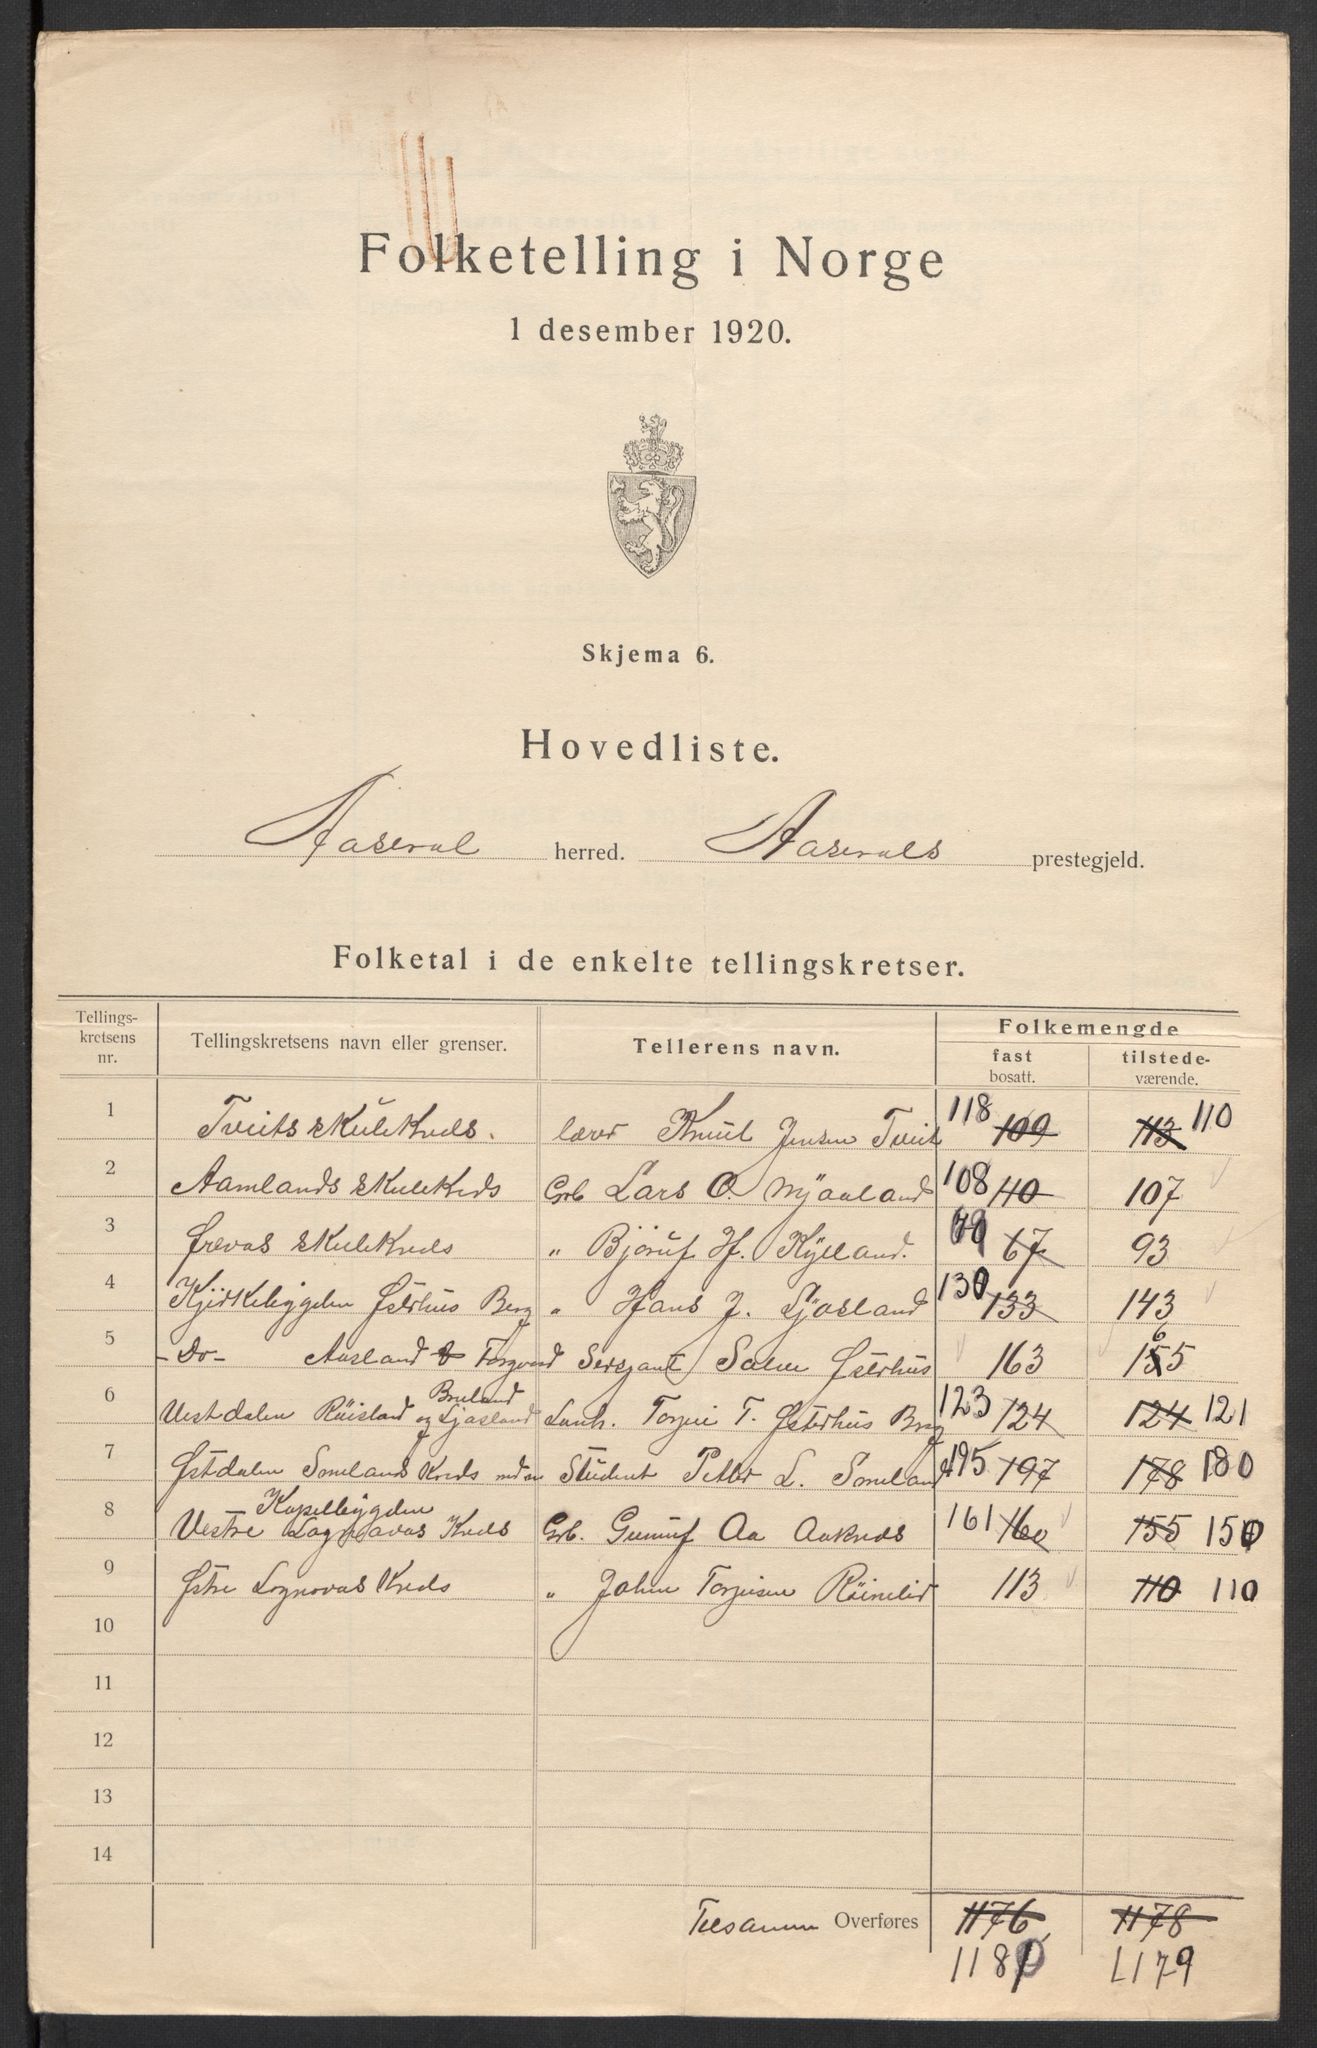 Folketelling i Norge
1 desember 1920.
Skjema 6.
Hovedliste.
Aaseral herred. Aaserals prestegjeld.
Folketal i de enkelte tellingskretser.
Tellings-kretsens nr. Tellingskretsens navn eller grenser. Tellerens navn. Folkemengde fast bosatt. tilstede-værende.
1 Tveits skulekreds. lærer Knut Jensen Tveit 118 109 113 110
2 Aamlands skulekreds Grb Lars O. Mjaaland 108 110 107
3 skulekreds " Bjoruf H. Kylland. 67 93
4 Kjirkebygden Østerhus Berg " Hans J. Ljosland 130 133 143
5 -Do- Aasland Sersjant Østerhus 163 155 6
6 Vestdalen Røisland og Ljosland Breland Lanh. Torjei T. Østerhus Berg 123 124 124 121
7 Østdalen Smelands Kreds Student Peter L. Smeland 195 197 178 180
8 Vestre Lognavas Kreds Kapelbygden Grb. Gunuf Aa Aakreds 161 160 155 150
9 Østre Lognavas Kreds " John Torjeisen Røinelid 113 110 110
10
11
12
13
14
Tilsamm Overføres 1176 1178
1180 1179